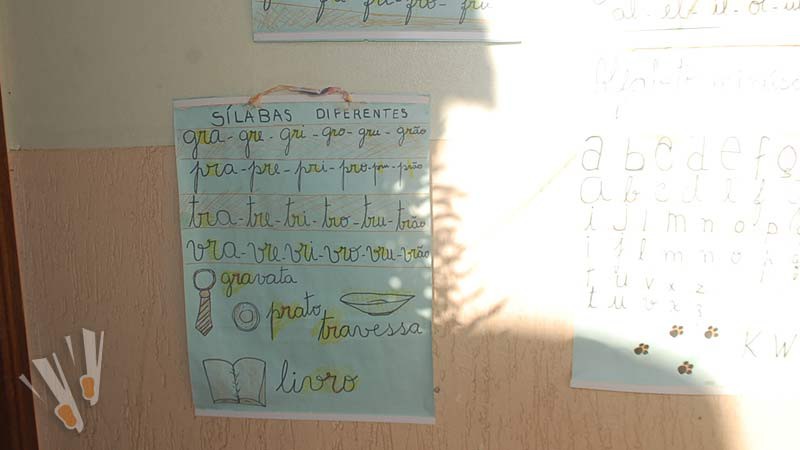 fru
al - el - il - ol - ul
SÍLABAS DIFERENTES
gra - gre - gri - gro - gru - grão
pra - pre - pri - pro - pru - prão
tra - tre - tri - tro - tru - trão
vra - vre - vri - vro - vru - vrão
gravata
prato
travessa
livro
a b c d e f g
a b c d e f
i j l m n o p
i j l m n o p
t u v x z
t u v x z
K W